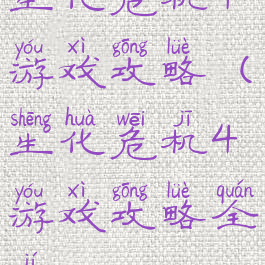 生化危机4
yóu xì gōng lüè
游戏攻略（
shēng huà wēi jī
生化危机4
yóu xì gōng lüè quán
游戏攻略全
jí